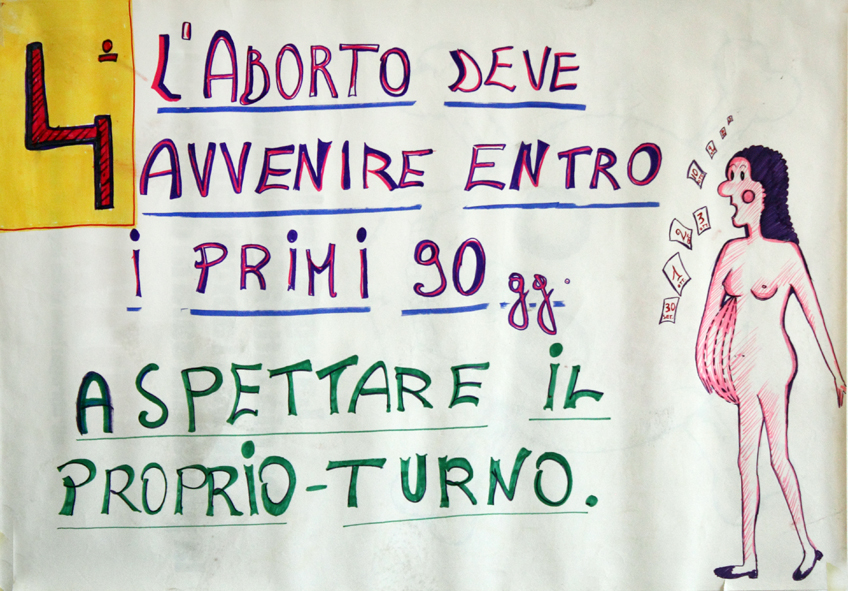 4°
L'ABORTO DEVE
AVVENIRE ENTRO
i PRiMi 90 gg.
ASPETTARE iL
PROPRiO-TURNO.
3
1
30